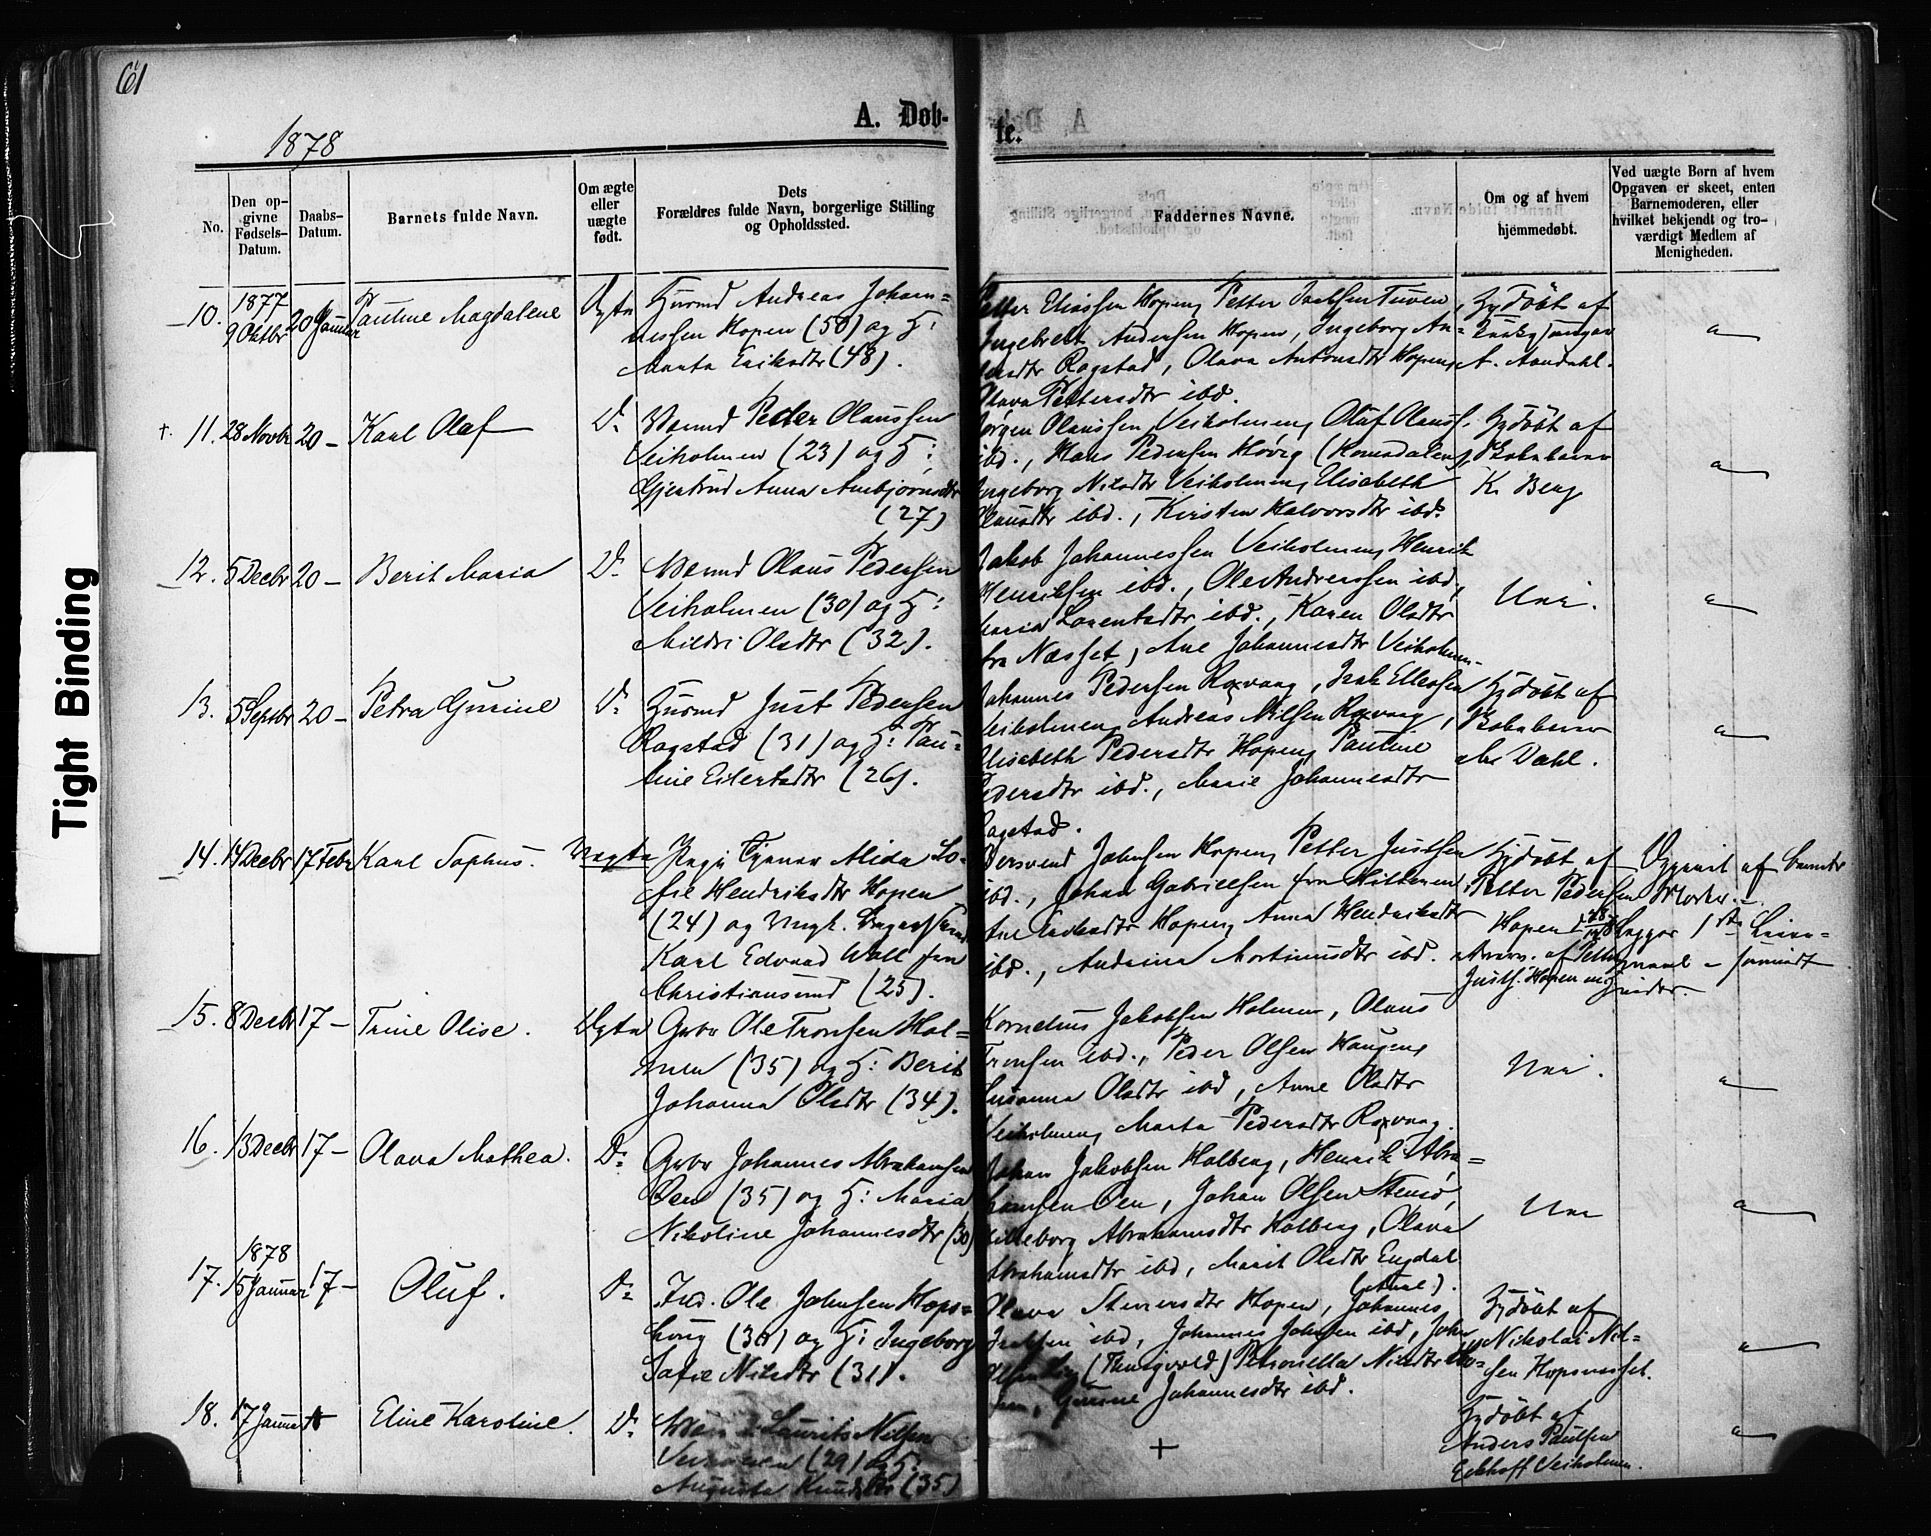 61
A. Døb-
te.
1878
No.
Den op-
givne
Fødsels-
Datum.
Daabs-
Datum.
Barnets fulde Navn.
Om ægte
eller
uægte
født.
Dets
Forældres fulde Navn, borgerlige Stilling
og Opholdssted.
Faddernes Navne.
Om og af hvem
hjemmedøbt.
Ved uægte Børn af hvem
Opgaven er skeet, enten
Barnemoderen, eller
hvilket bekjendt og tro-
værdigt Medlem af
Menigheden.
10. 1877 9 Oktbr 20 Januar Pauline Magdalene Ægte Husmd Andreas Johan=
nessen Hopen (50) og H:
Marta Eriksdtr (48).
Petter Eliassen Hopen, Petter Isaksen Tuven,
Ingebrett Andersen Hopen, Ingeborg An=
Ragstad, Olava Antonsdtr Hopen,
Olava Pettersdtr ibd.
Hjdøbt af
A. Aandahl.
11. 28 Novbr 20 - Karl Olaf Do Værmd Peder Olaussen
Veiholmen (23) og H:
Gjertrud Anna Ambjørnsdtr
(27)
Jørgen Olaussen Veiholmen, Oluf Olauss.
ibd., Hans Pedersen Høvig (Romsdalen),
Ingeborg Nilsdtr Veiholmen, Elisabeth
Olausdtr ibd., Kirsten Halvorsdtr ibd.
Hjdøbt af
K. Berg
12. 5 Decbr 20 - Berit Maria Do Værmd Olaus Pedersen
Veiholmen (30) og H:
Mildri Olsdtr (32).
Jakob Johannessen Veiholmen, Henrik
Henriksen ibd., Ole Andreassen ibd.,
Maria Lorentsdtr ibd., Karen Olsdtr
fra Næsset, Ane Johannesdtr Veiholmen
Nei.
13. 5 Septbr 20 - Petra Gurine Do Husmd Just Pedersen
Ragstad (31) og H: Pau=
line Eilertsdtr (26).
Johannes Pedersen Roxvaag, Isak Ellevsen
Veiholmen, Andreas Nilsen Roxvaag,
Elisabeth Pedersdtr Hopen, Pauline
Pedersdtr ibd., Marie Johannesdtr
Ragstad.
Hjdøbt af
Dahl.
14. 14 Decbr 17 Febr Karl Sophus. Uægte Pige Alida So=
fie Hendriksdtr Hopen
(24) og Ungk.
Karl Edvard Wall fra
Christiansund (25).
Johnsen Hopen, Petter Justsen
ibd., Johan Gabrielsen fra Hitteren
Hopen, Anna Hendriksdtr
ibd., Andrina Mortinusdtr ibd.
Hjdøbt af
Petter Pedersen
Hopen
af Petter
Justs. Hopen
Opgivet af Barnets
Moder.
Begges 1ste Leier=
maal
15. 8 Decbr 17 - Trine Olise. Ægte Gbr Ole Tronsen Hol=
men (35) og H: Berit
Johanna Olsdtr (34).
Kornelius Jakobsen Holmen, Olaus
Tronsen ibd., Peder Olsen Haugen,
Susanna Olsdtr ibd, Anne Olsdtr
Veiholmen, Marta Pedersdtr Roxvaag.
Nei.
16. 13 Decbr 17 - Olava Mathea. Do Gbr Johannes Abrahamsen
Øen (35) og H: Maria
Nikoline Johannesdtr (30)
Johan Jakobsen Holberg, Henrik Abra=
hamsen Øen, Johan Olsen Stensø,
Abrahamsdtr Holberg, Olava
Abrahamsdtr ibd, Marit Olsdtr Engdal
Nei
17. 1878 15 Januar 17 - Oluf. Do Ind. Ole Johnsen Hops=
(30) og H: Ingeborg
Sofie Nilsdtr (31).
Olava Hopen, Johannes
Isaksen ibd, Johannes Johnsen ibd, John
Petronella Nilsdtr
Johannesdtr ibd.
Hjdøbt af
Nikolai Nil=
sen Hopsnæsset.
18. 17 Januar Eline Karoline. Do Laurits Nilsen
Veiholmen (29) og H:
Augusta Knudsdtr (35)
+
Hjdøbt af
Anders Paulsen
Eckhoff Veiholmen.
Tight Binding